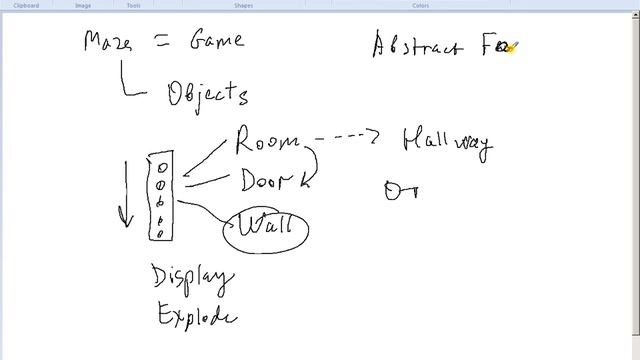 Clipboard Image Tools Shapes Colors
Maze = Game
Abstract Fa
Objects
Room
Hallway
Door
Wall
Display
Explode